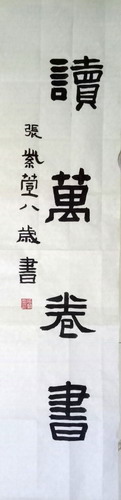 讀萬卷書
張紫萱八歲書